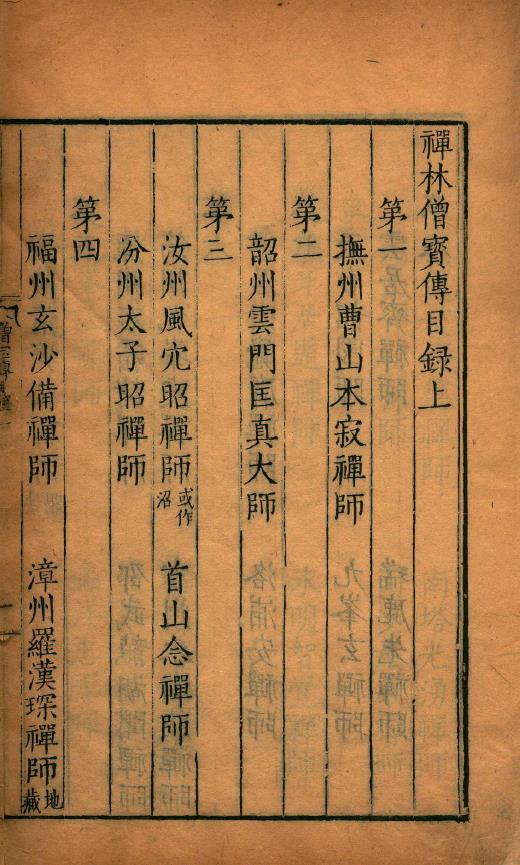 禪林僧寶傳目録上
第一
撫州曹山本寂禪師
第二
韶州雲門匡真大師
第三
汝州風穴昭禪師或作沼 首山念禪師
汾州太子昭禪師
第四
福州玄沙備禪師 漳州羅漢琛禪師地藏